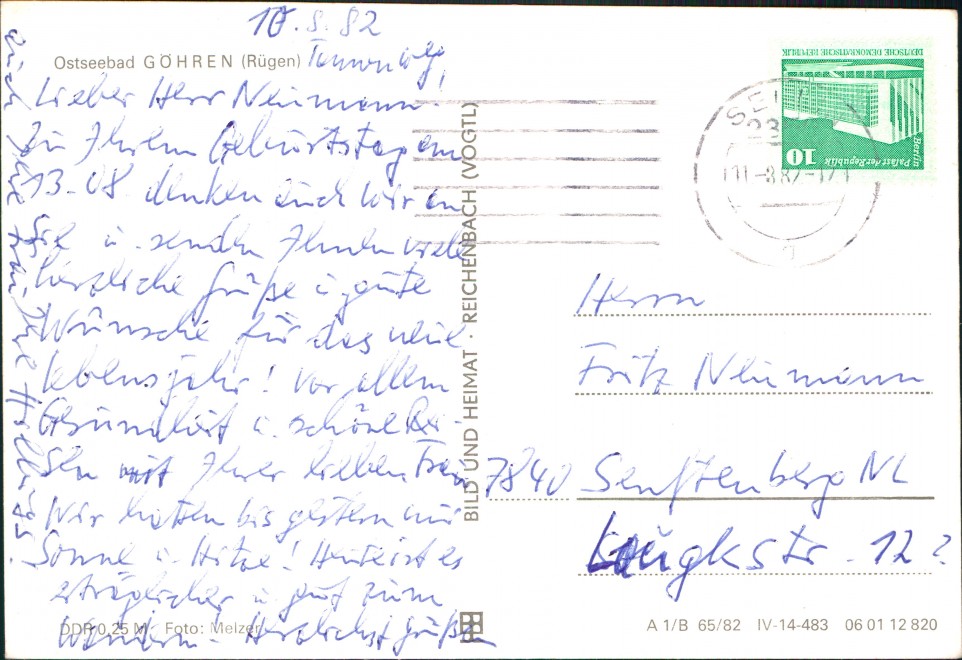 10.8.82
Ostseebad GÖHREN (Rügen)
Lieber Herr Neumann!
Zu Ihrem Geburtstag am
13.08 denken auch wir an
Sie u. senden Ihnen viele
herzliche Grüße u. gute
Wünsche für das neue
Lebensjahr! Vor allem
Gesundheit u. schöne Rei-
sen mit Ihrer lieben Frau
Wir hatten bis gestern nur
Sonne u. Hitze! Heute ist es
erträglicher u. gut zum
Wandern. Herzlichst grüßen
auch Ihre Frau Ihre
BILD UND HEIMAT · REICHENBACH (VOGTL)
DDR 0,25 M Foto: Melzer
DEUTSCHE DEMOKRATISCHE REPUBLIK
Berlin
Palast der Republik
10
Herrn
Fritz Neumann
7840 Senftenberg NL
str. 12?
A 1/B 65/82 IV-14-483 06 01 12 820